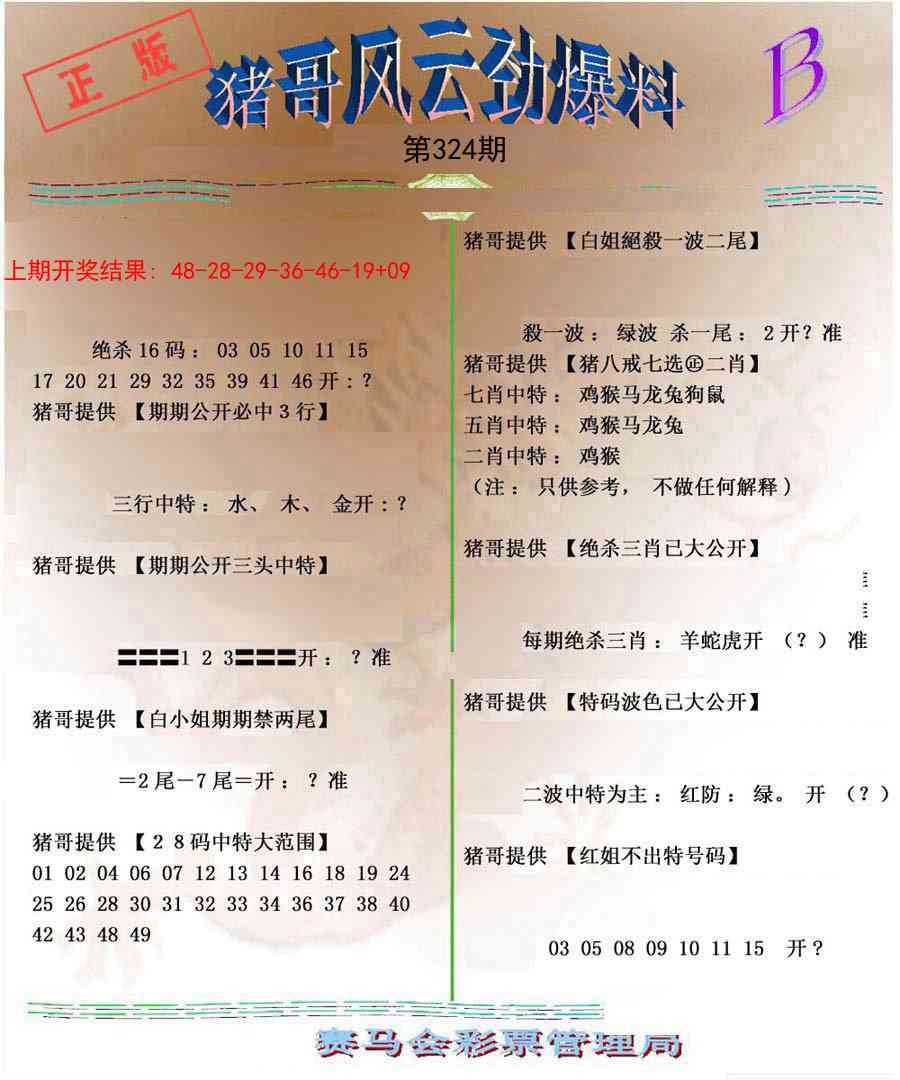 正版
猪哥风云劲爆料
B
第324期
上期开奖结果: 48-28-29-36-46-19+09
绝杀16码: 03 05 10 11 15
17 20 21 29 32 35 39 41 46开:?
猪哥提供 【期期公开必中3行】
三行中特: 水、 木、 金开:?
猪哥提供 【期期公开三头中特】
〓〓〓1 2 3〓〓〓开: ?准
猪哥提供 【白小姐期期禁两尾】
=2尾-7尾=开: ?准
猪哥提供 【28码中特大范围】
01 02 04 06 07 12 13 14 16 18 19 24
25 26 28 30 31 32 33 34 36 37 38 40
42 43 48 49
猪哥提供 【白姐絕殺一波二尾】
殺一波: 绿波 杀一尾: 2开?准
猪哥提供 【猪八戒七选㊣二肖】
七肖中特: 鸡猴马龙兔狗鼠
五肖中特: 鸡猴马龙兔
二肖中特: 鸡猴
(注: 只供参考, 不做任何解释)
猪哥提供 【绝杀三肖已大公开】
每期绝杀三肖: 羊蛇虎开 (?) 准
猪哥提供 【特码波色已大公开】
二波中特为主: 红防: 绿。 开 (?)
猪哥提供 【红姐不出特号码】
03 05 08 09 10 11 15 开?
赛马会彩票管理局